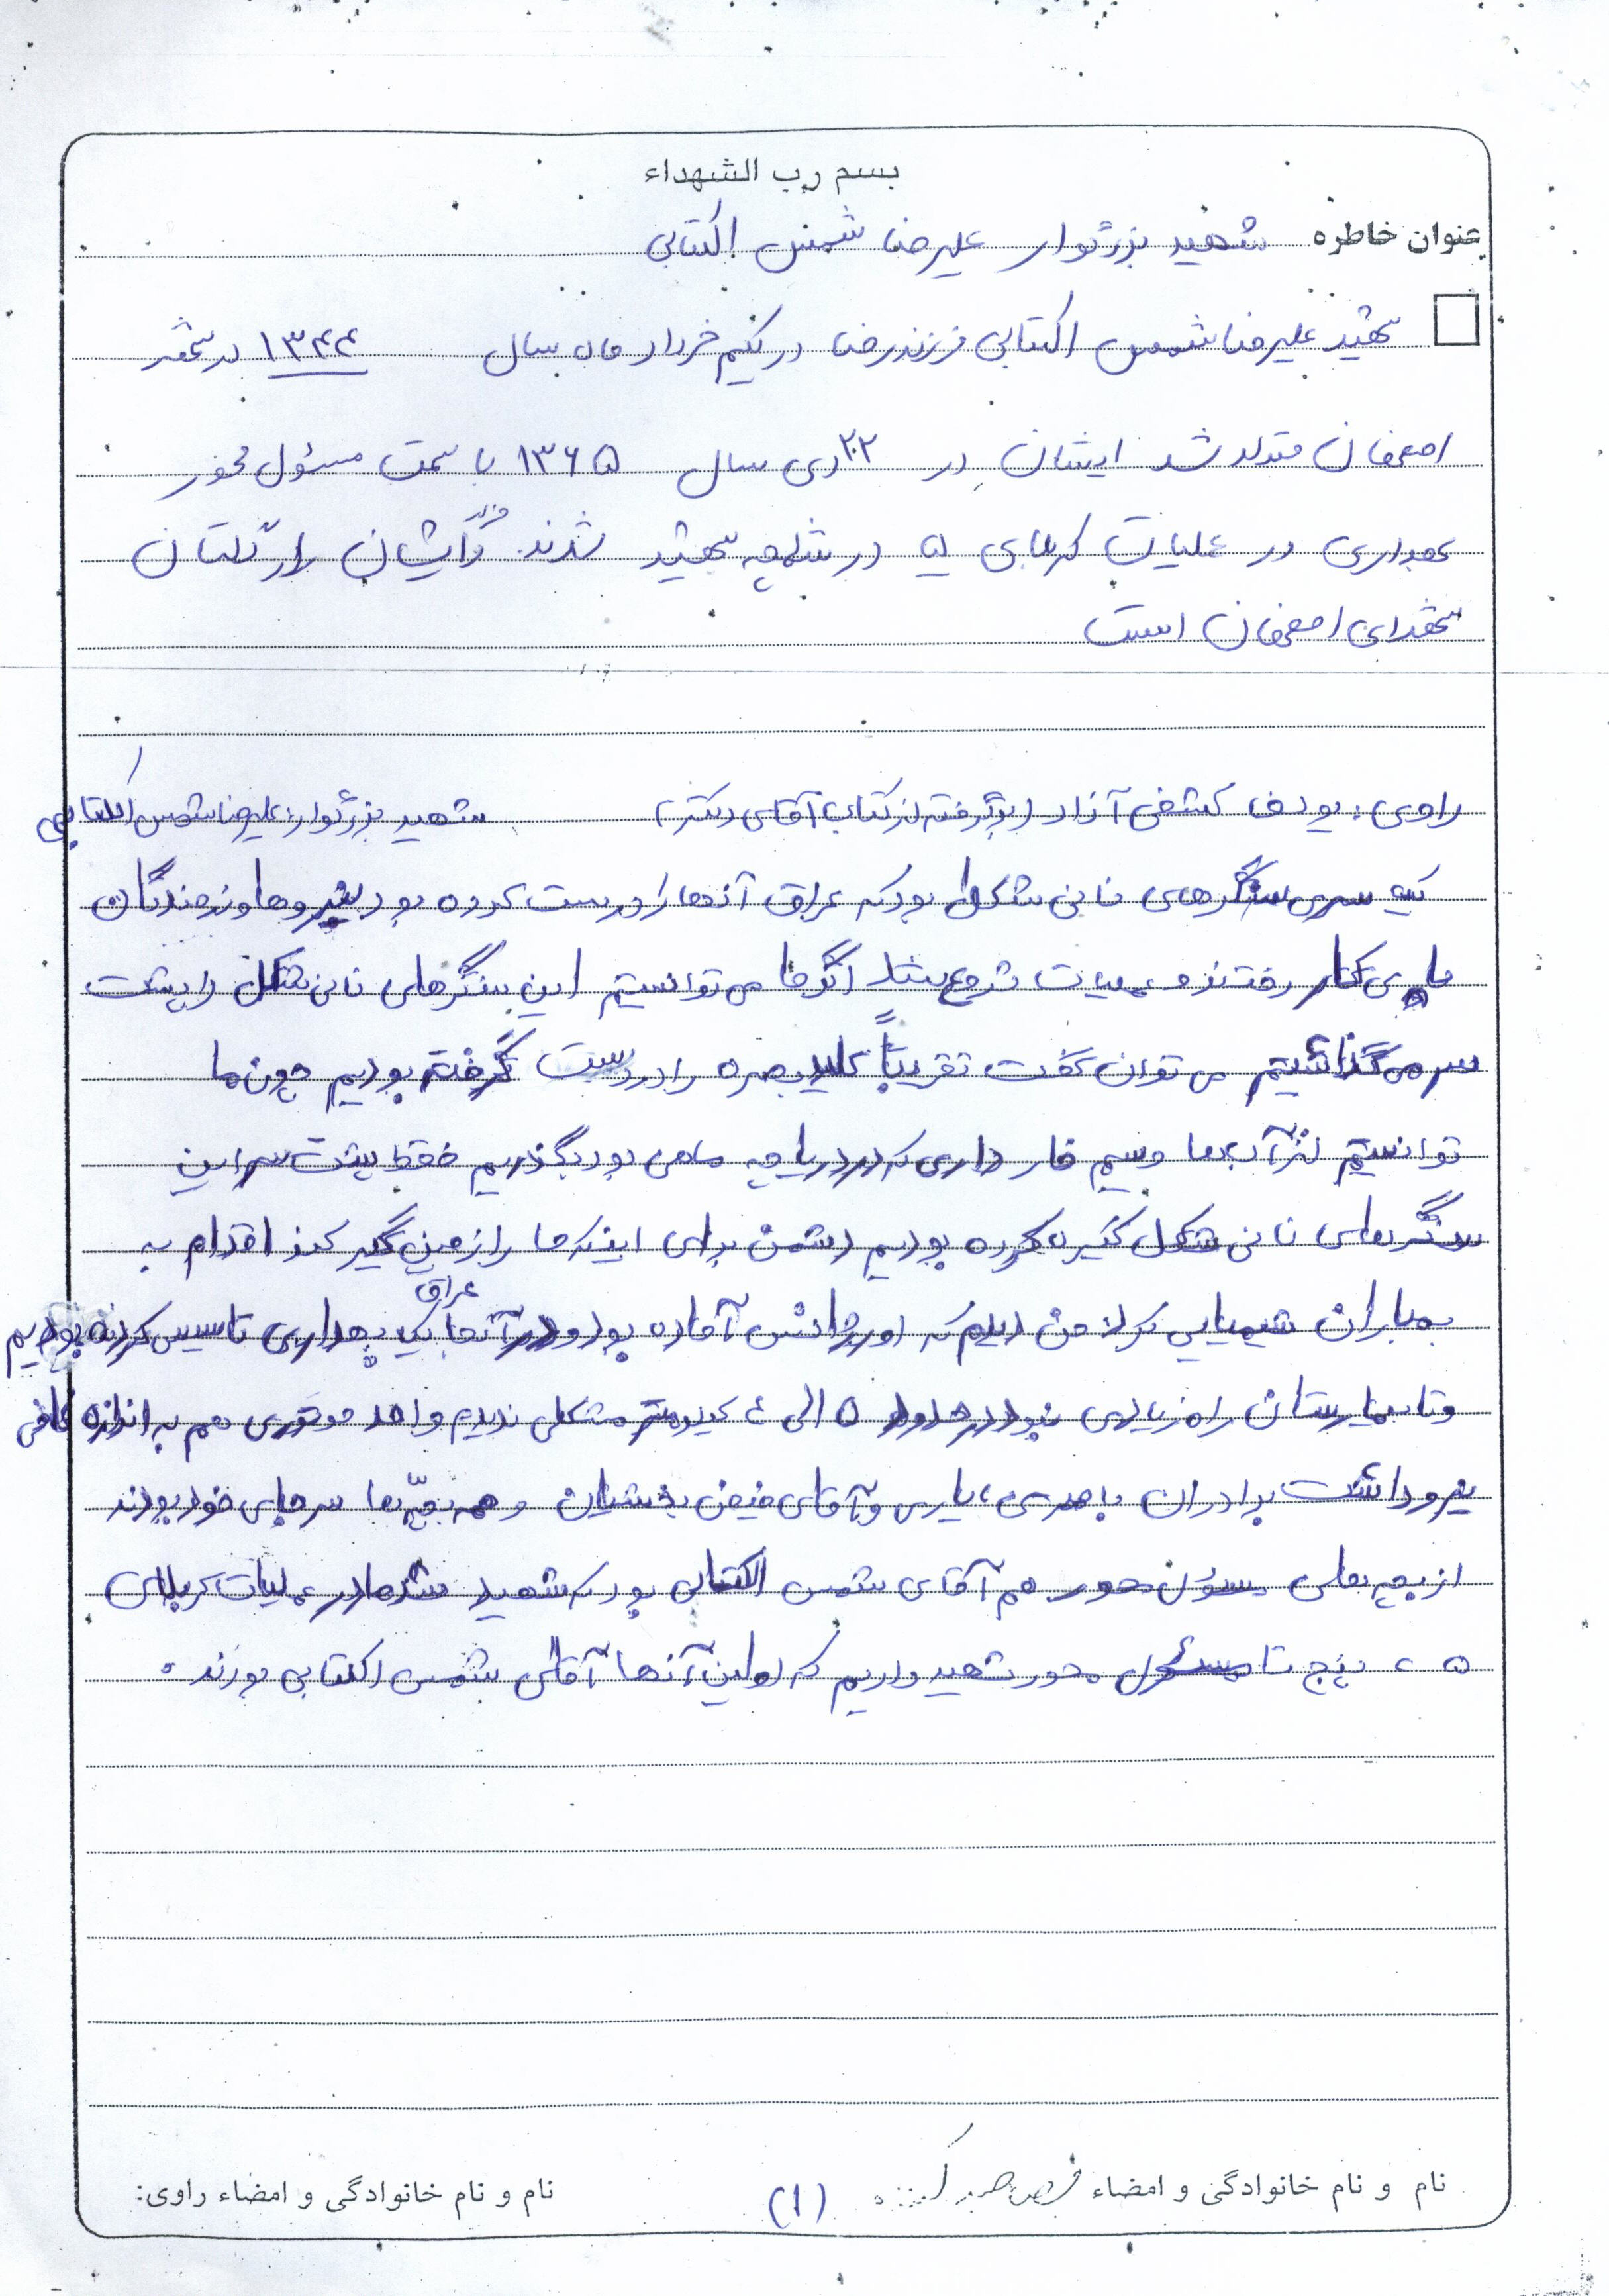 بسم رب الشهداء
عنوان خاطره شهید بزرگوار علیرضا شمس اکتابی
شهید علیرضا شمس اکتابی فرزند رضا در یکم خرداد ماه سال ۱۳۴۴ در شهر
اصفهان متولد شد ایشان در ۲۲ دی سال ۱۳۶۵ با سمت مسئول محور
بهداری در عملیات کربلای ۵ در شلمچه شهید شدند مزار ایشان در گلستان
شهدای اصفهان است
راوی: یوسف کشفی آزاد (برگرفته از کتاب آقای دکتر) شهید بزرگوار: علیرضا شمس اکتابی
یک سری سنگرهای نانی شکل بود که عراق آنها را درست کرده بود نیروها و رزمندگان
ما پای کار رفتند و عملیات شروع شد اگر ما می توانستیم این سنگرهای نانی شکل را پشت
سر می گذاشتیم می توان گفت تقریباً کلید بصره را در دست گرفته بودیم چون ما
توانستیم از آب ها و سیم خار داری که در دریاچه ماهی بود بگذریم فقط پشت سر این
سنگرهای نانی شکل گیر کرده بودیم دشمن برای اینکه ما را زمین گیر کند اقدام به
بمباران شیمیایی کرد من دیدم که اورژانس آماده بود و در آنجا یک بهداری تاسیس کرده بودیم
عراق
و تا بیمارستان راه زیادی نبود در حدود ۵ الی ۶ کیلومتر مشکلی ندیدم واحد موتوری هم به اندازه کافی
نیرو داشت برادران باصری، یاری و آقای فیض بخشیان و همه بچّه ها سر جای خود بودند
از بچه های مسئول محور هم آقای شمس اکتابی بود که شهید شد ما در عملیات کربلای
۵، پنج تا مسئول محور شهید داریم که اولین آنها آقای شمس اکتابی بودند.
نام و نام خانوادگی و امضاء
(۱)
نام و نام خانوادگی و امضاء راوی: